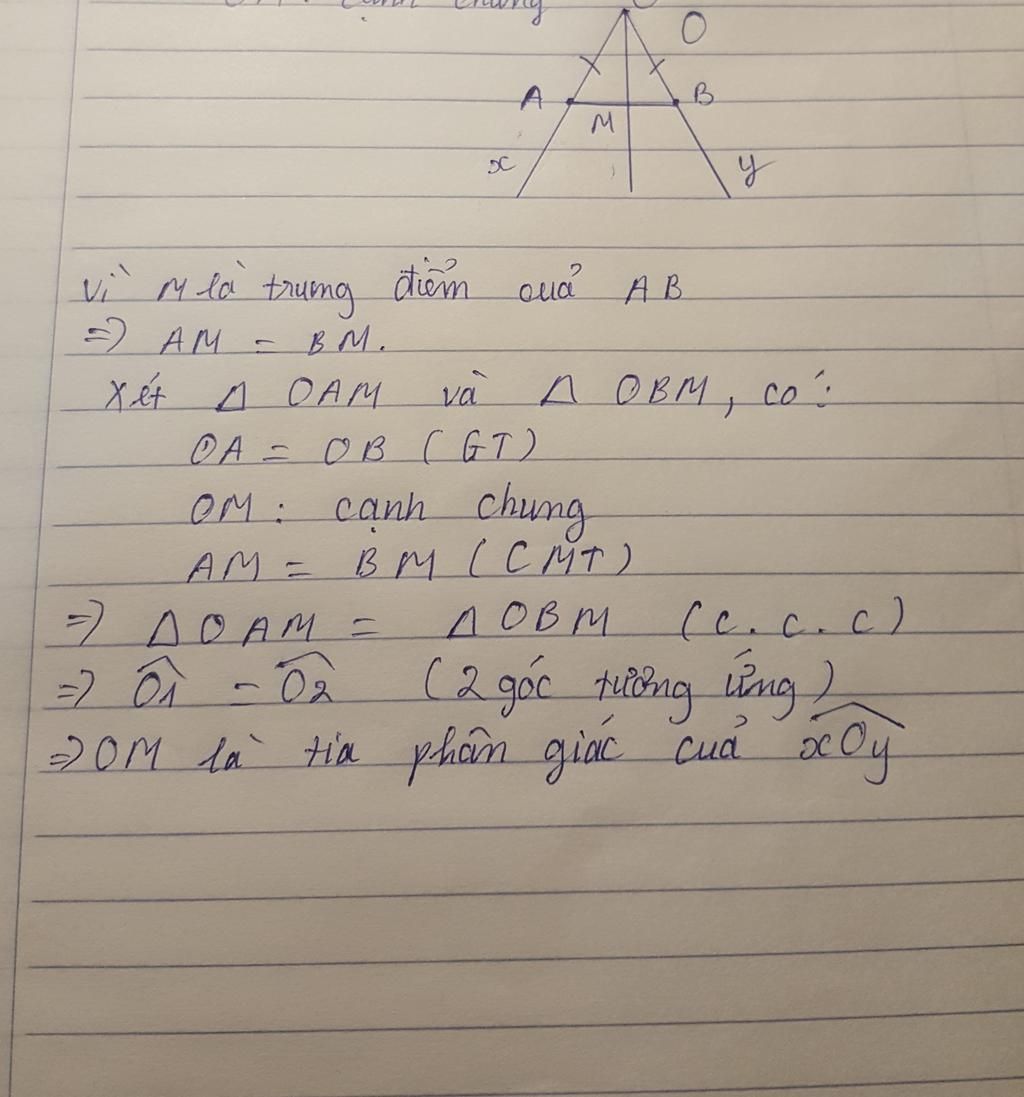 cạnh chung
O
A
B
M
x
y
Vì M là trung điểm cuả AB
=> AM = BM.
Xét Δ OAM và Δ OBM, có:
OA = OB (GT)
OM : cạnh chung
AM = BM (CMT)
=> ΔOAM = ΔOBM (c.c.c)
=> Ô1 = Ô2 (2 góc tương ứng)
=> OM là tia phân giác cuả xOy